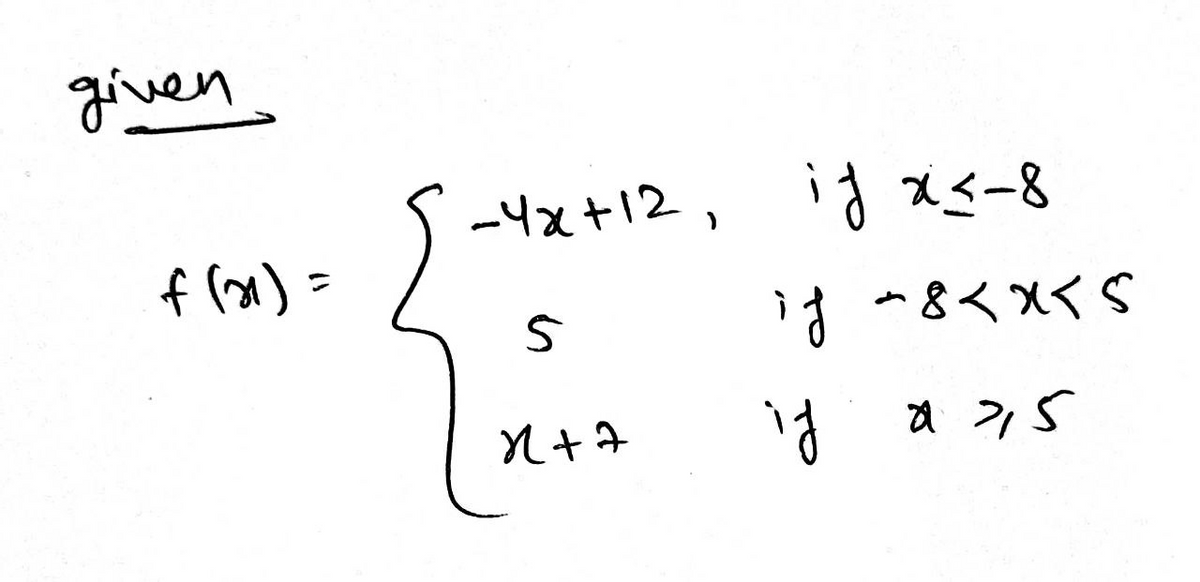 given
-4x+12, if x≤-8
f(x) = { 5 if -8<x<5
x+7 if x≥5